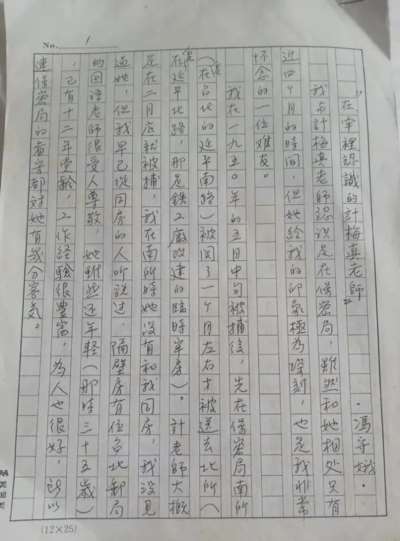 No. 1
"在牢裡認識的計梅真老師"
・馮守娥・
我与計梅真老師認識是在保密局,雖然和她相處只有
近四個月的時間,但她給我的印象極為深刻,也是我非常
怀念的一位难友。
我在一九五〇年的五月中旬被捕後,先在保密局南所
(在台北的延平南路)被関了一个月左右才被送去北所(
在延平北路,那是鉄工廠改建的臨時牢房)。計老師大概
是在二月底就被捕,我在南所時她没有和我同房,我没見
過她,但我早已從同房的人听説过,隔壁房有位台北郵局
的国語老師很受人尊敬,她雖然还年轻(那時三十五歲)
,已有十二年党齢,工作経驗很豊富,為人也很好,所以
連保密局的看守都对她有幾分客氣。
(12×25)